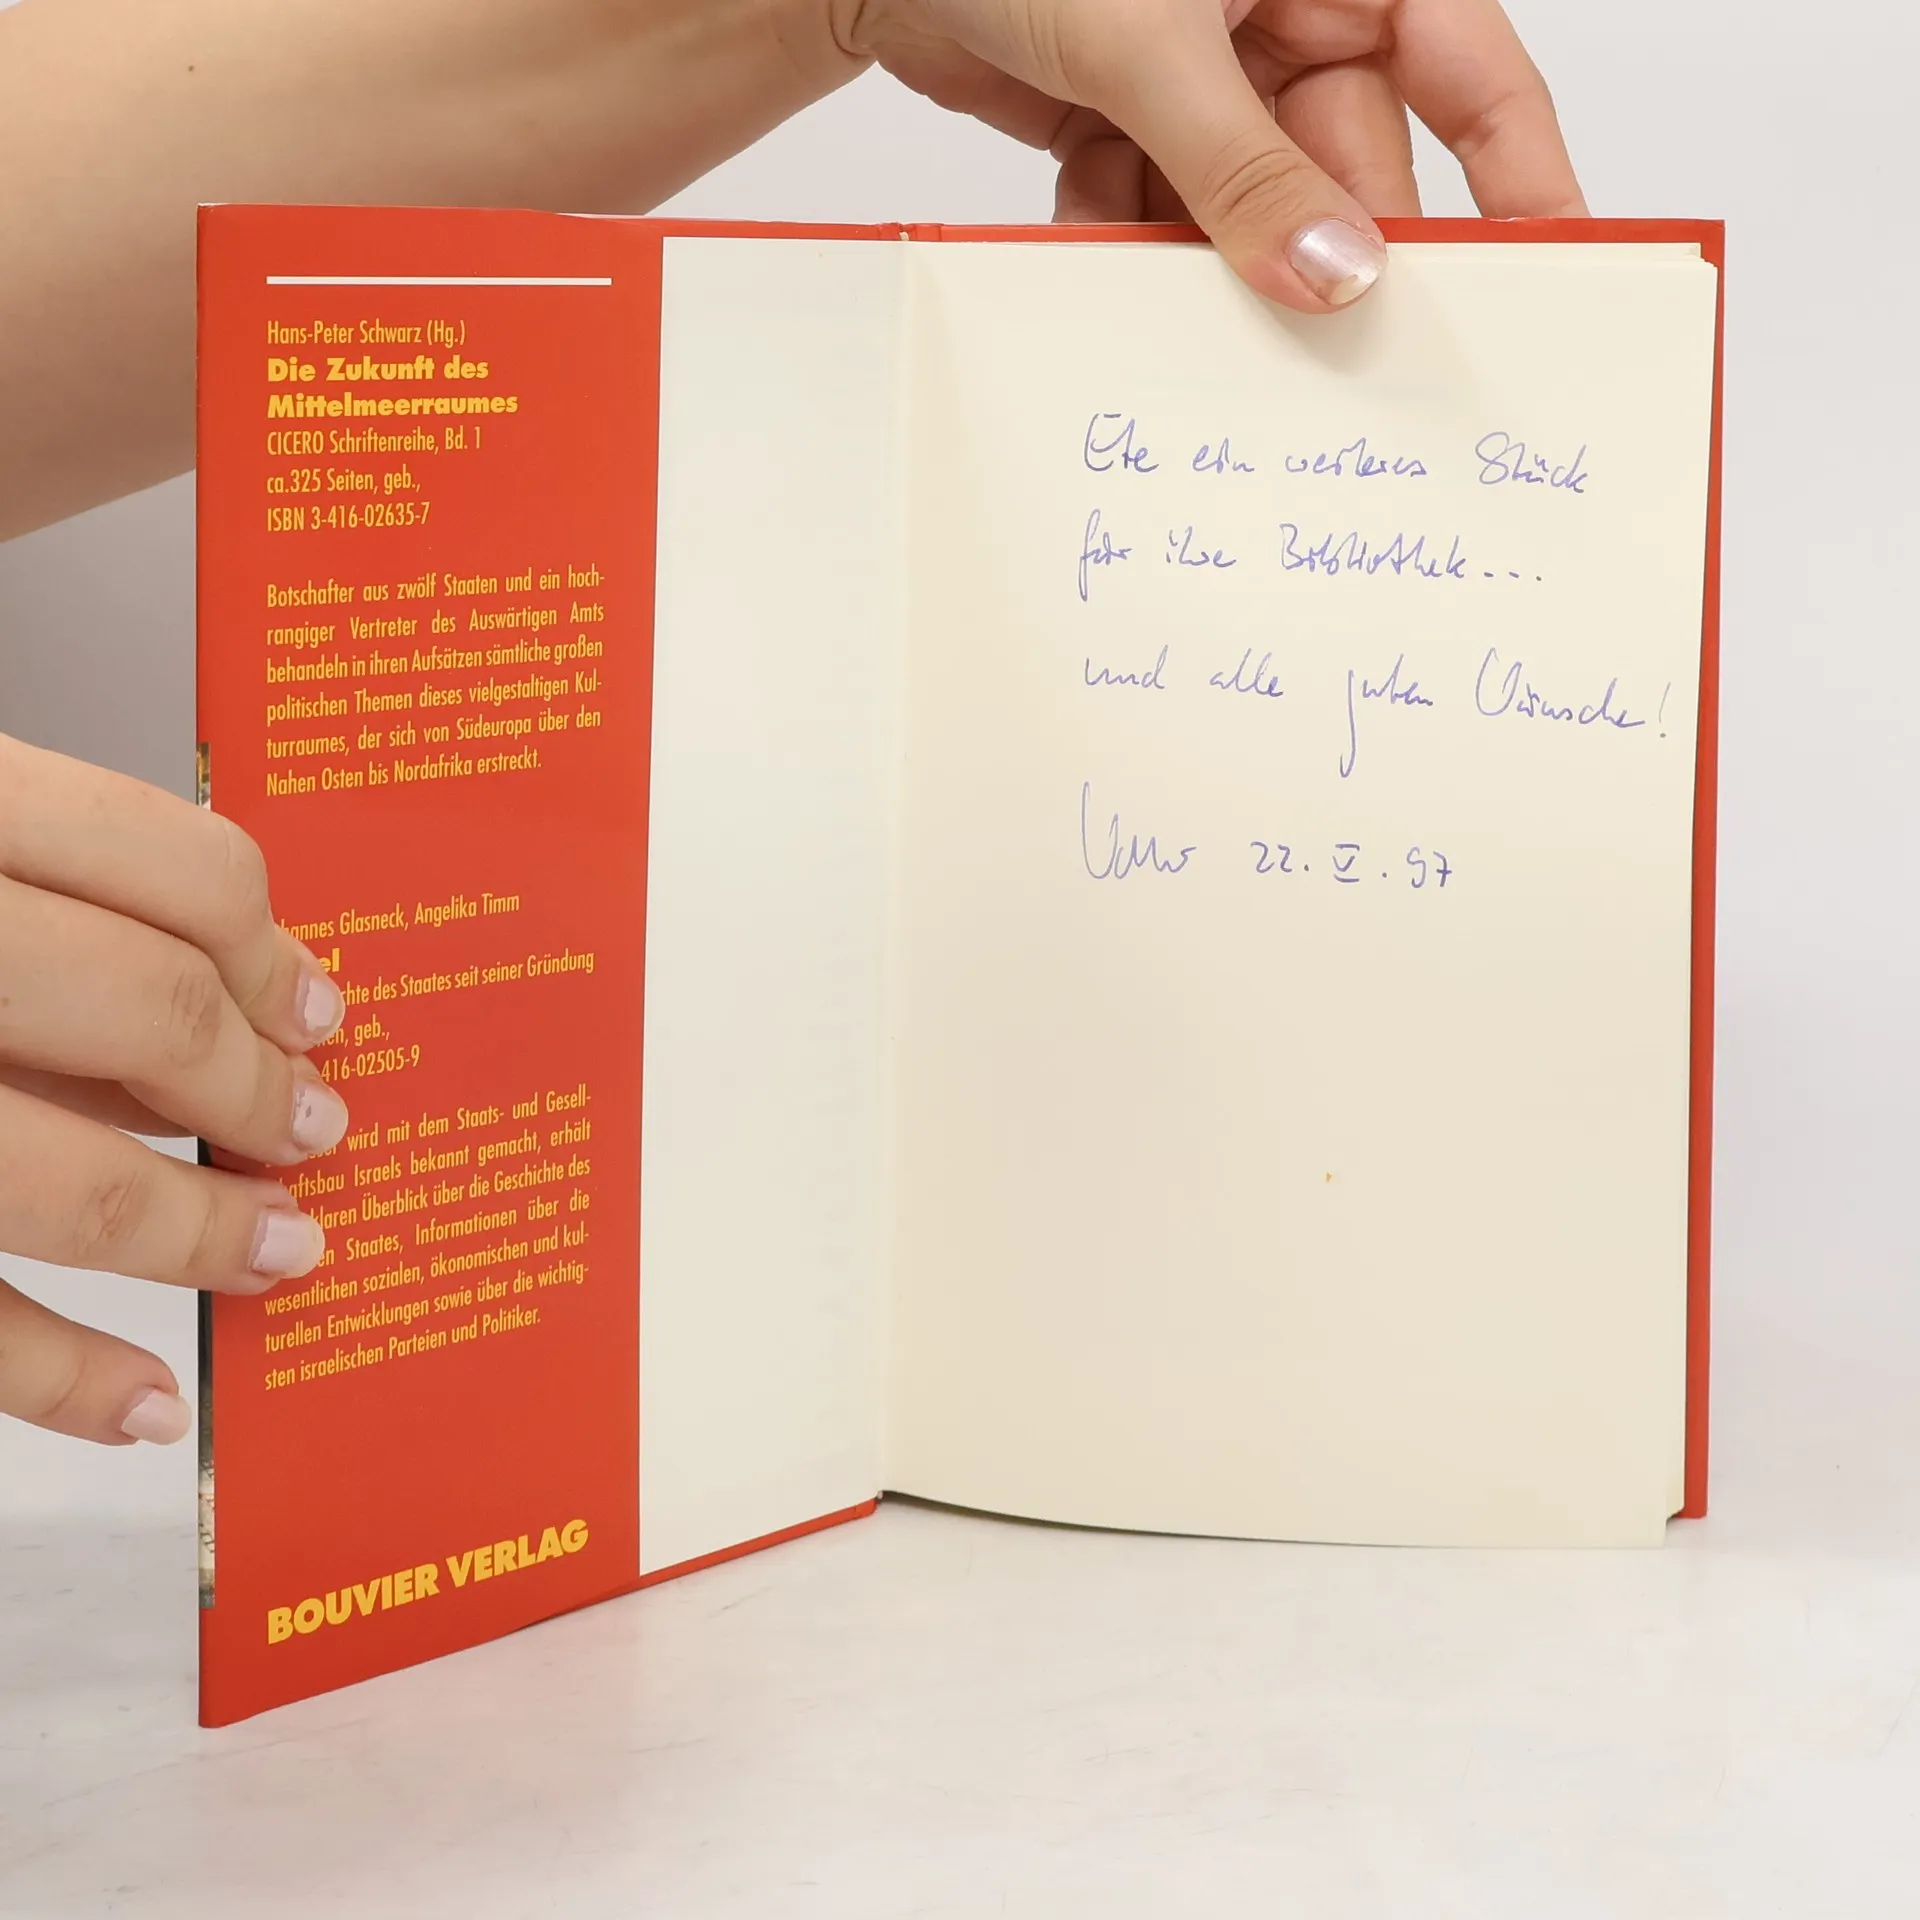 Hans-Peter Schwarz (Hg.)
Die Zukunft des
Mittelmeerraumes
CICERO Schriftenreihe, Bd. 1
ca.325 Seiten, geb.,
ISBN 3-416-02635-7
Botschafter aus zwölf Staaten und ein hoch-
rangiger Vertreter des Auswärtigen Amts
behandeln in ihren Aufsätzen sämtliche großen
politischen Themen dieses vielgestaltigen Kul-
turraumes, der sich von Südeuropa über den
Nahen Osten bis Nordafrika erstreckt.
hannes Glasneck, Angelika Timm
el
chte des Staates seit seiner Gründung
en, geb.,
416-02505-9
wird mit dem Staats- und Gesell-
haftsbau Israels bekannt gemacht, erhält
klaren Überblick über die Geschichte des
en Staates, Informationen über die
wesentlichen sozialen, ökonomischen und kul-
turellen Entwicklungen sowie über die wichtig-
sten israelischen Parteien und Politiker.
BOUVIER VERLAG
ein weiteres Stück
für ihre Bibliothek...
und alle guten Wünsche!
22. V. 97